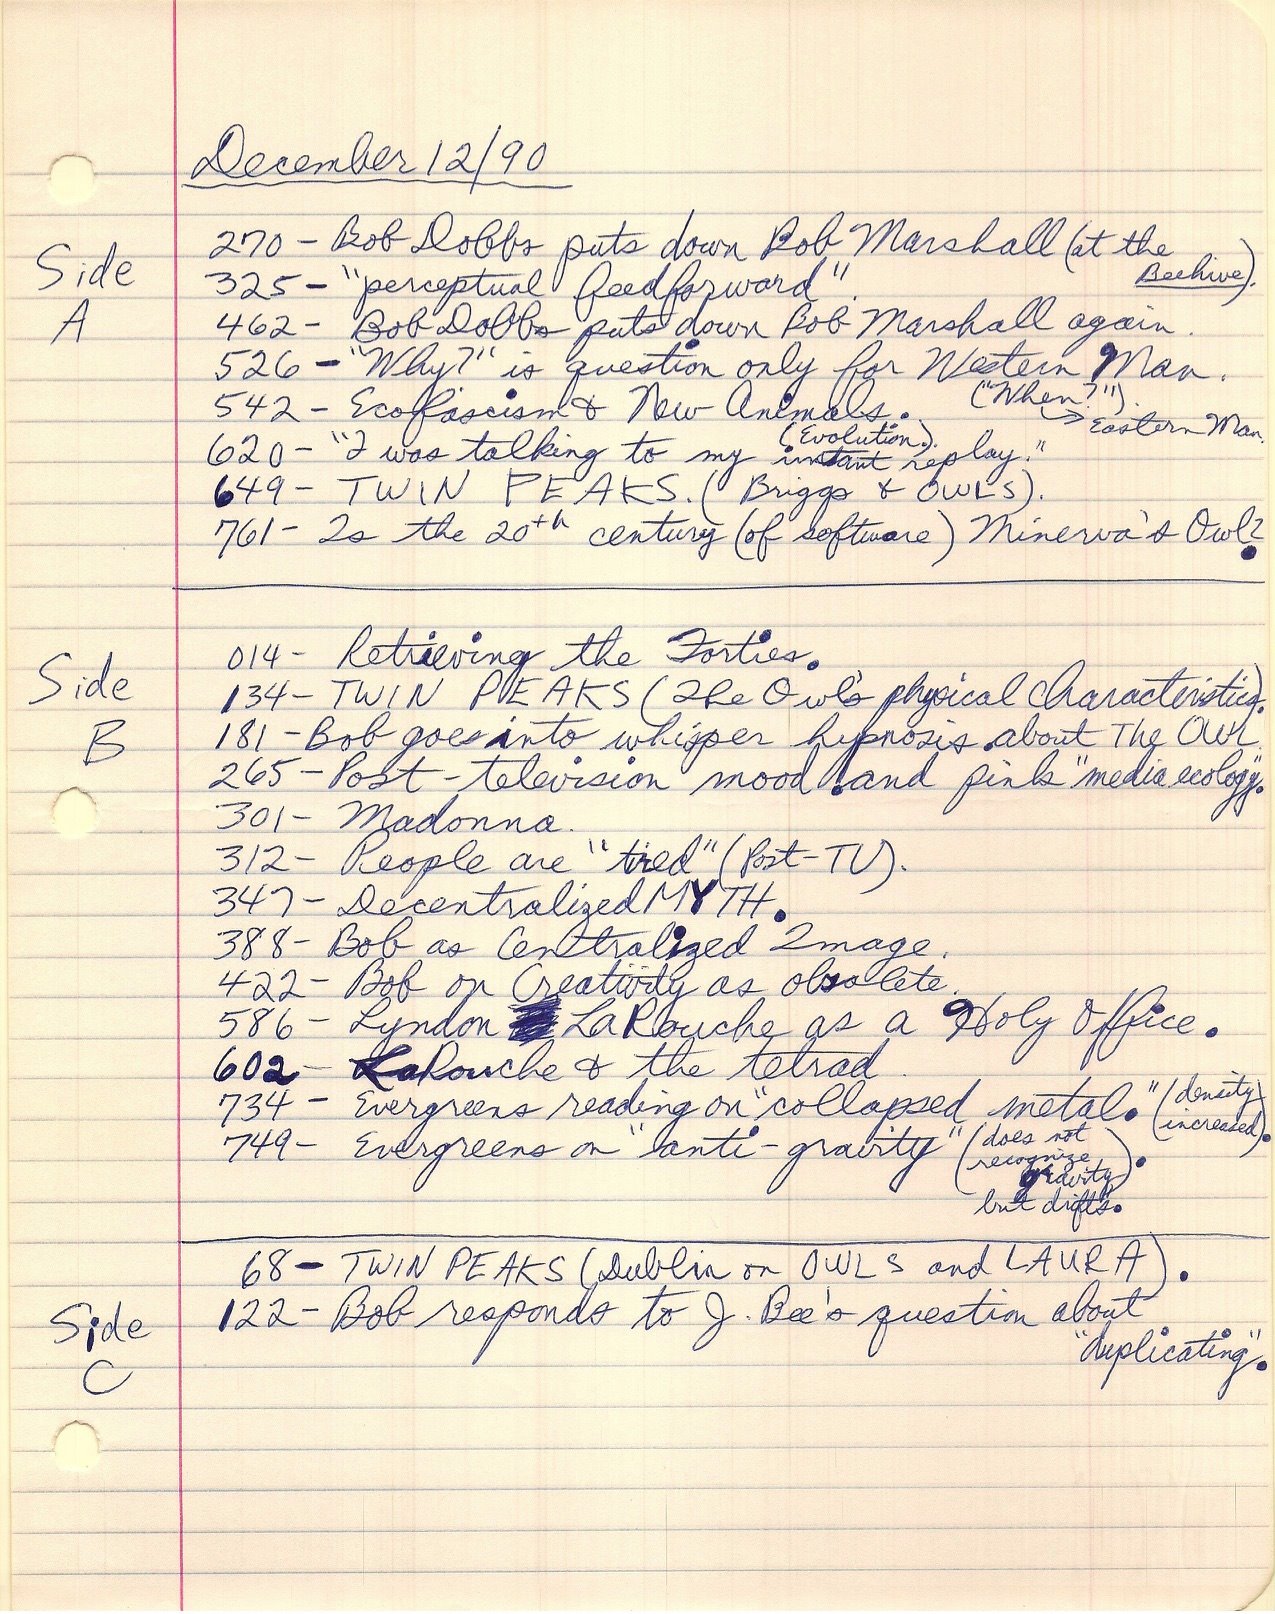 December 12/90
Side
A
270 - Bob Dobbs puts down Bob Marshall (at the
Beehive).
325 - "perceptual feedforward".
462 - Bob Dobbs puts down Bob Marshall again.
526 - "Why?" is question only for Western Man.
("When?").
→ Eastern Man.
542 - Ecofascism & New Animals.
(Evolution).
620 - "I was talking to my instant replay."
649 - TWIN PEAKS. (Briggs & OWLS).
761 - Is the 20th century (of software) Minerva's Owl?
Side
B
014 - Retrieving the Forties.
134 - TWIN PEAKS (The Owl's physical characteristics).
181 - Bob goes into whisper hypnosis about The OWL.
265 - Post-television mood and pink "media ecology".
301 - Madonna.
312 - People are "tired" (Post-TV).
347 - Decentralized MYTH.
388 - Bob as Centralized Image.
422 - Bob on Creativity as obsolete.
586 - Lyndon LaRouche as a Holy Office.
602 - LaRouche & the tetrad.
734 - Evergreens reading on "collapsed metal." (density
increased).
749 - Evergreens on "anti-gravity" (does not
recognize
gravity).
but drifts.
Side
C
68 - TWIN PEAKS (Dublin on OWLS and LAURA).
122 - Bob responds to J. Bee's question about
"duplicating".